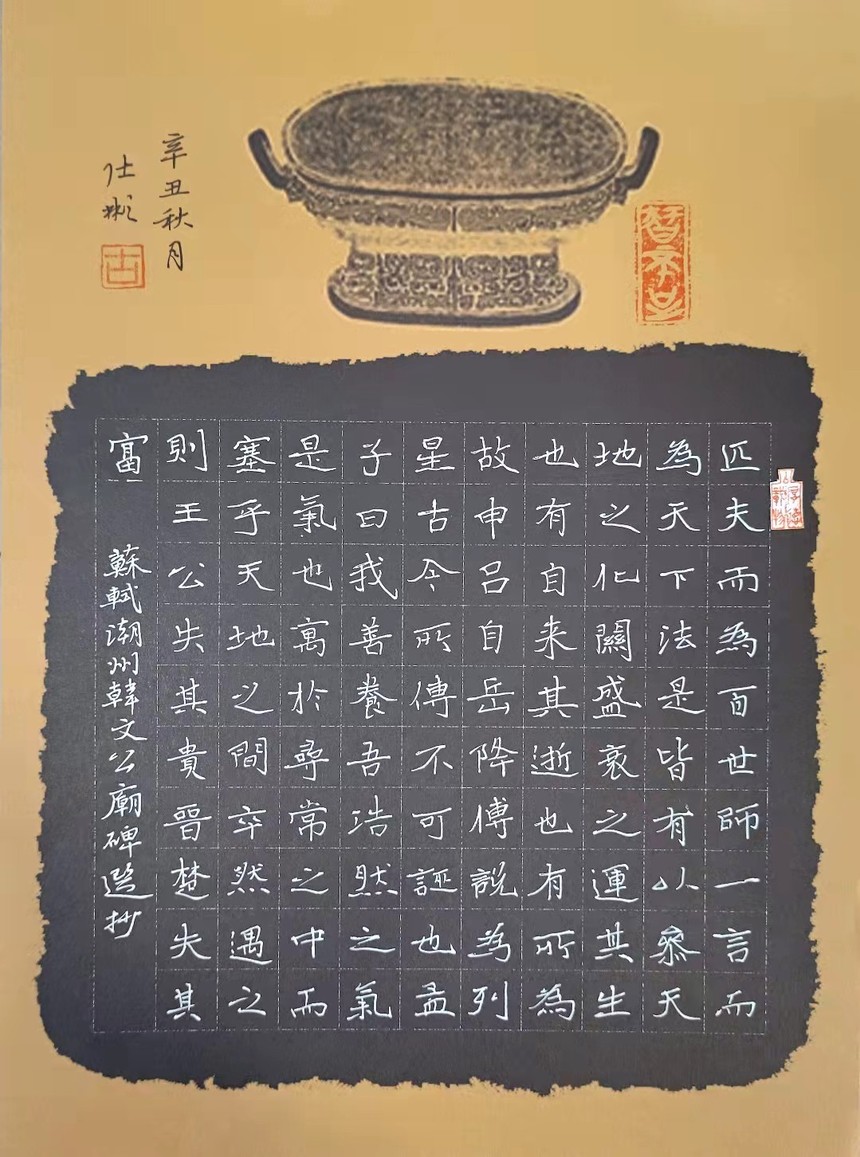 匹夫而為百世師一言而
為天下法是皆有以叅天
地之化關盛衰之運其生
也有自来其逝也有所為
故申吕自岳降傅說為列
星古今所傳不可誣也孟
子曰我善養吾浩然之氣
是氣也寓於尋常之中而
塞乎天地之間卒然遇之
則王公失其貴晉楚失其
富
蘇軾潮州韓文公廟碑選抄
辛丑秋月
仕彬